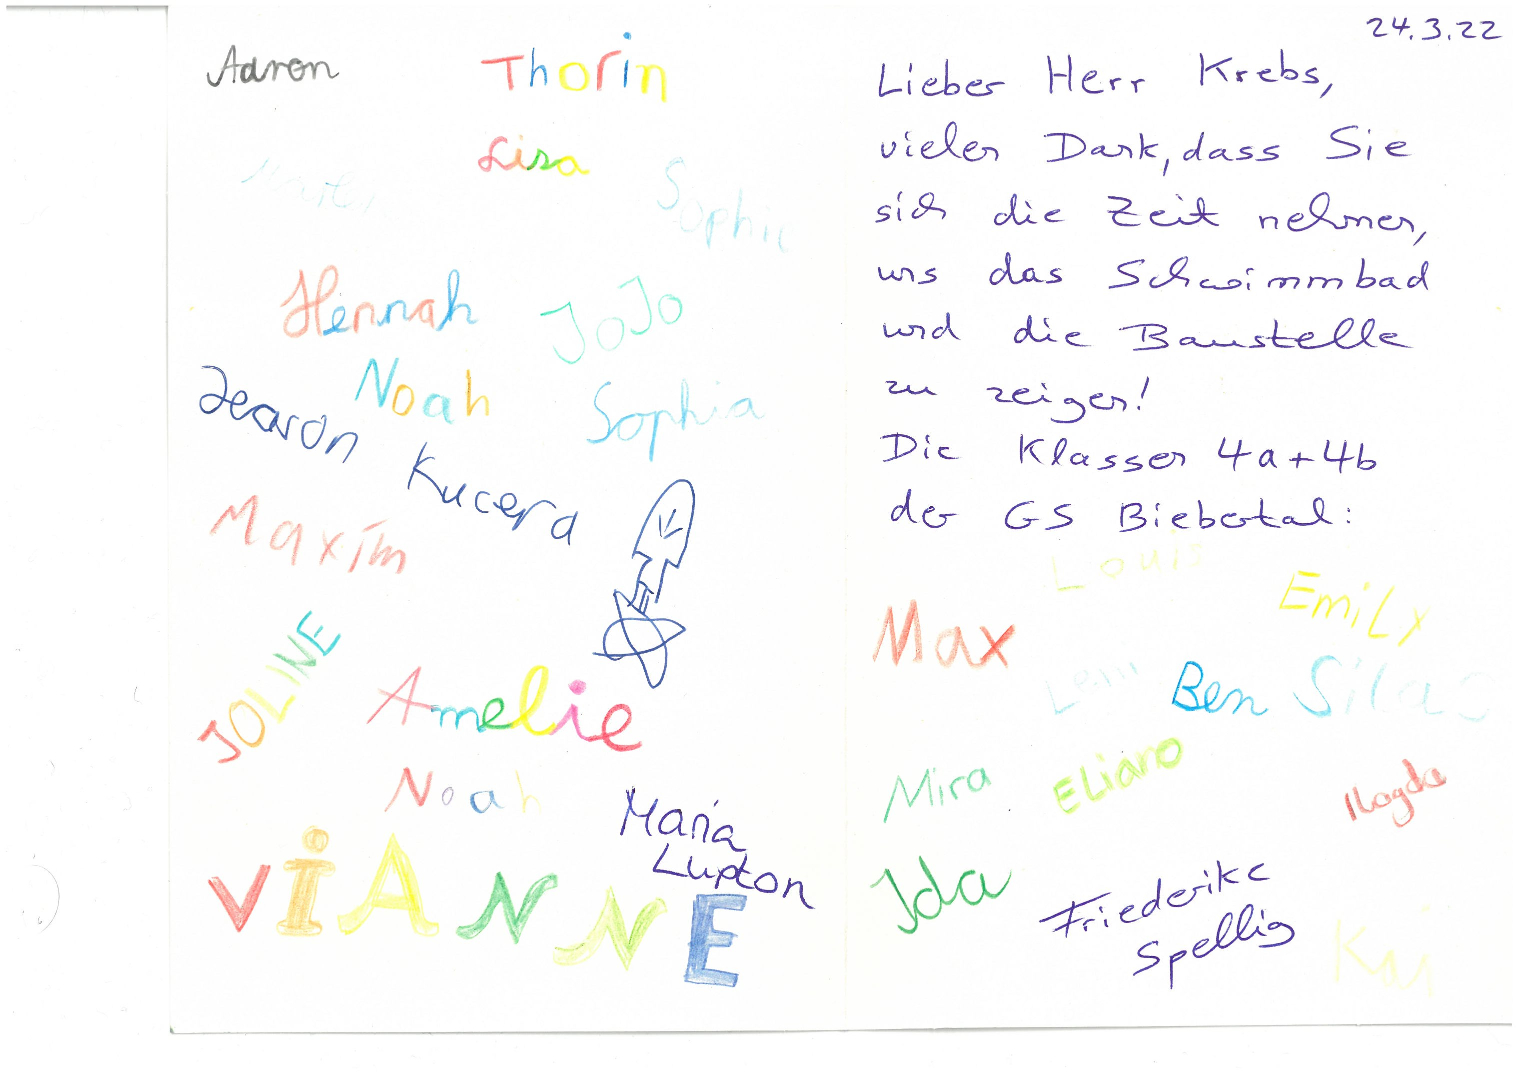 Aaron
Thorin
Lisa
Sophie
Hennah
JoJo
Noah
Sophia
Jearon
Kucera
Maxim
JOLINE
Amelie
Noah
Maria
Lupton
ViANNE
24.3.22
Lieber Herr Krebs,
vielen Dank, dass Sie
sich die Zeit nehmen,
uns das Schwimmbad
und die Baustelle
zu zeigen!
Die Klassen 4a+4b
der GS Biebertal:
Louis
Emily
Max
Leni
Ben
Silas
Mira
Eliano
Magda
Ida
Friederike
Spellig
Kai